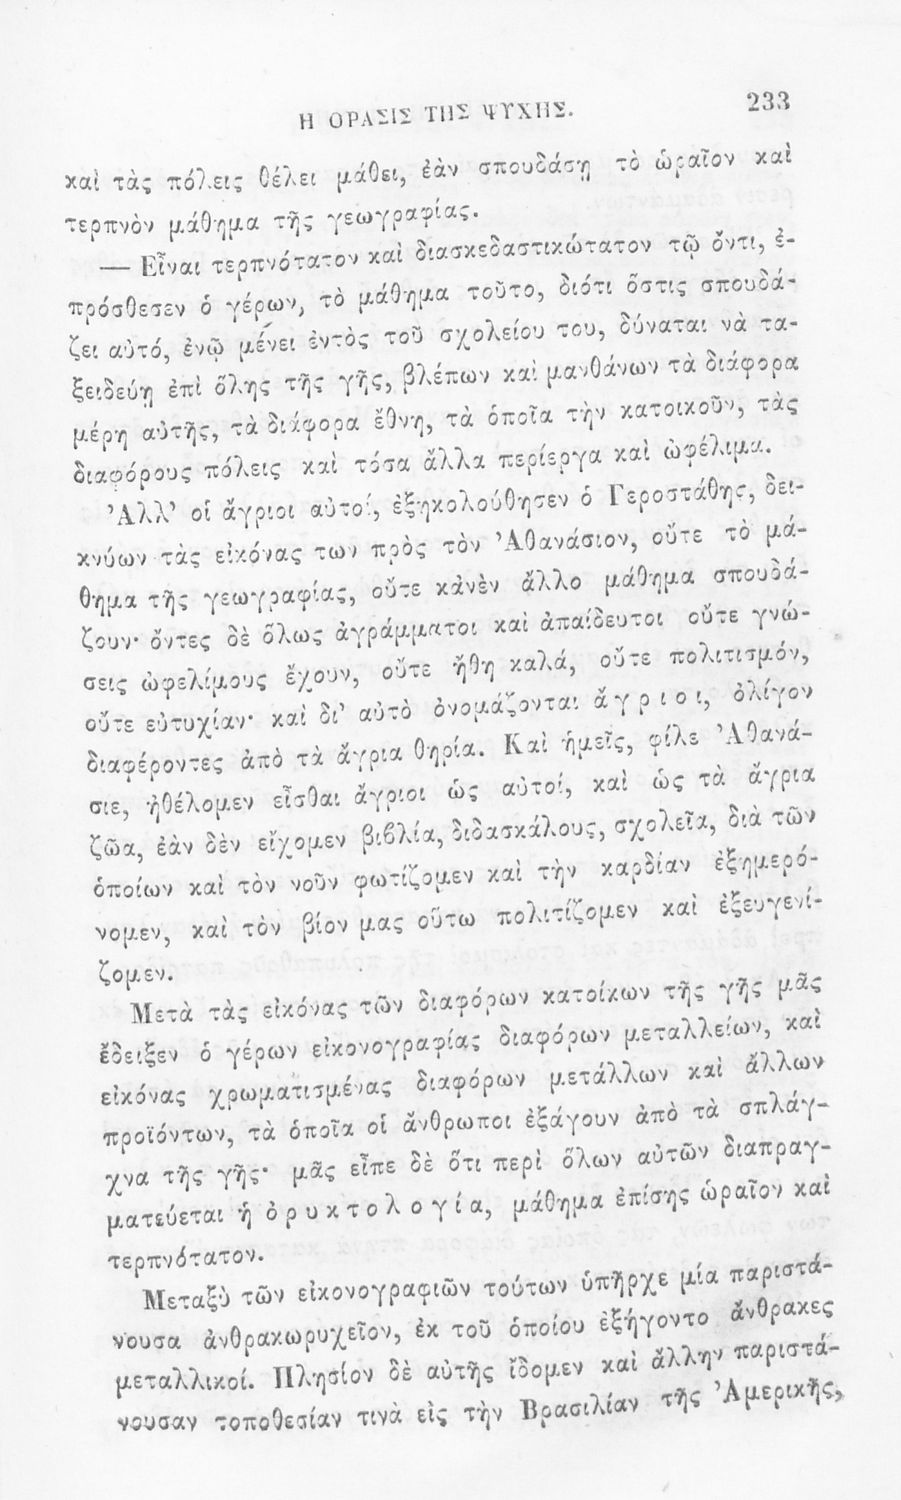 Η ΟΡΑΣΙΣ ΤΗΣ ΨΥΧΗΣ. 233
καὶ τὰς πόλεις θέλει μάθει, ἐὰν σπουδάσῃ τὸ ὡραῖον καὶ
τερπνὸν μάθημα τῆς γεωγραφίας.
— Εἶναι τερπνότατον καὶ διασκεδαστικώτατον τῷ ὄντι, ἐ-
πρόσθεσεν ὁ γέρων, τὸ μάθημα τοῦτο, διότι ὅστις σπουδά-
ζει αὐτό, ἐνῷ μένει ἐντὸς τοῦ σχολείου του, δύναται νὰ τα-
ξειδεύῃ ἐπὶ ὅλης τῆς γῆς, βλέπων καὶ μανθάνων τὰ διάφορα
μέρη αὐτῆς, τὰ διάφορα ἔθνη, τὰ ὁποῖα τὴν κατοικοῦν, τὰς
διαφόρους πόλεις καὶ τόσα ἄλλα περίεργα καὶ ὠφέλιμα.
Ἀλλ' οἱ ἄγριοι αὐτοί, ἐξηκολούθησεν ὁ Γεροστάθης, δει-
κνύων τὰς εἰκόνας των πρὸς τὸν Ἀθανάσιον, οὔτε τὸ μά-
θημα τῆς γεωγραφίας, οὔτε κἀνὲν ἄλλο μάθημα σπουδά-
ζουν· ὄντες δὲ ὅλως ἀγράμματοι καὶ ἀπαίδευτοι οὔτε γνώ-
σεις ὠφελίμους ἔχουν, οὔτε ἤθη καλά, οὔτε πολιτισμόν,
οὔτε εὐτυχίαν· καὶ δι' αὐτὸ ὀνομάζονται ἄ γ ρ ι ο ι, ὀλίγον
διαφέροντες ἀπὸ τὰ ἄγρια θηρία. Καὶ ἡμεῖς, φίλε Ἀθανά-
σιε, ἠθέλομεν εἶσθαι ἄγριοι ὡς αὐτοί, καὶ ὡς τὰ ἄγρια
ζῶα, ἐὰν δὲν εἴχομεν βιβλία, διδασκάλους, σχολεῖα, διὰ τῶν
ὁποίων καὶ τὸν νοῦν φωτίζομεν καὶ τὴν καρδίαν ἐξημερό-
νομεν, καὶ τὸν βίον μας οὕτω πολιτίζομεν καὶ ἐξευγενί-
ζομεν.
Μετὰ τὰς εἰκόνας τῶν διαφόρων κατοίκων τῆς γῆς μᾶς
ἔδειξεν ὁ γέρων εἰκονογραφίας διαφόρων μεταλλείων, καὶ
εἰκόνας χρωματισμένας διαφόρων μετάλλων καὶ ἄλλων
προϊόντων, τὰ ὁποῖα οἱ ἄνθρωποι ἐξάγουν ἀπὸ τὰ σπλάγ-
χνα τῆς γῆς· μᾶς εἶπε δὲ ὅτι περὶ ὅλων αὐτῶν διαπραγ-
ματεύεται ἡ ὀ ρ υ κ τ ο λ ο γ ί α, μάθημα ἐπίσης ὡραῖον καὶ
τερπνότατον.
Μεταξὺ τῶν εἰκονογραφιῶν τούτων ὑπῆρχε μία παριστά-
νουσα ἀνθρακωρυχεῖον, ἐκ τοῦ ὁποίου ἐξήγοντο ἄνθρακες
μεταλλικοί. Πλησίον δὲ αὐτῆς ἴδομεν καὶ ἄλλην παριστά-
νουσαν τοποθεσίαν τινὰ εἰς τὴν Βρασιλίαν τῆς Ἀμερικῆς,